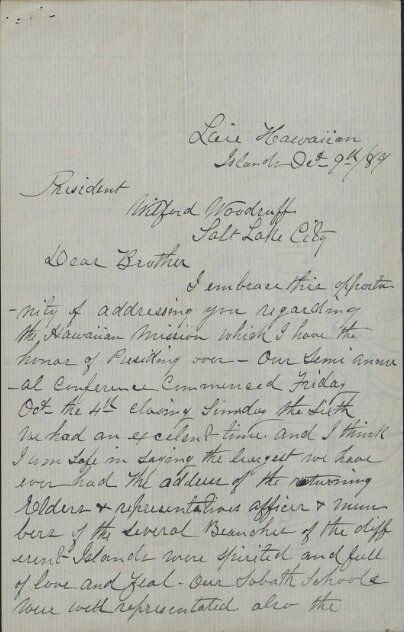 Laie Hawaiian
Islands Oct 9th/89
President
Wilford Woodruff
Salt Lake City
Dear Brother
I embrace this opportu
-nity of addressing you regarding
the Hawaiian Mission which I have the
honor of Presiding over - Our Semi annu
-al Conference Commenced Friday
Oct the 4th closing Sunday the Sixth
We had an excelent time and I think
I am safe in saying the largest we have
ever had the address of the returning
Elders & representatives officer & mem
bers of the several Beanches of the diff
erent Islands were spirited and full
of love and Zeal - Our Sobath Schools
were well represented also the